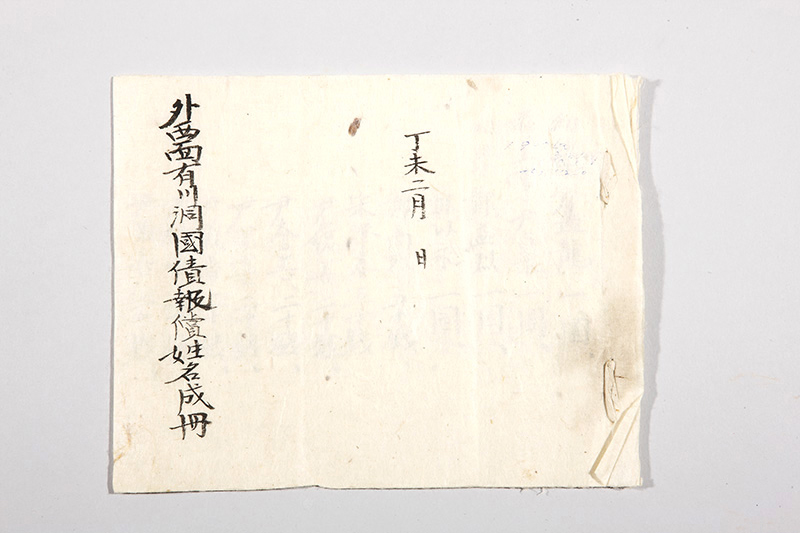 丁未二月 日
外西面有川洞國債報償姓名成冊